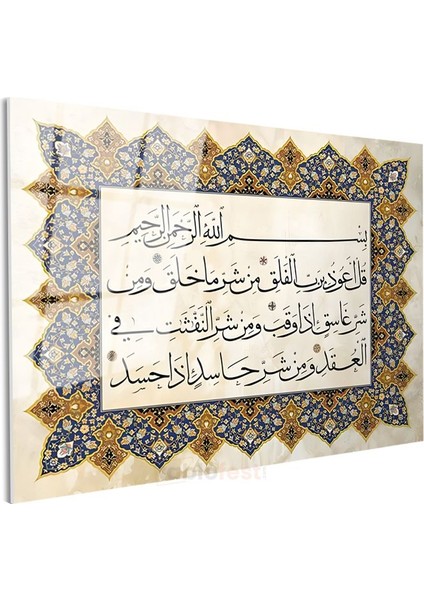 بسم الله الرحمن الرحيم
قل اعوذ برب الفلق من شر ما خلق ومن
شر غاسق اذا وقب ومن شر النفثت في
العقد ومن شر حاسد اذا حسد